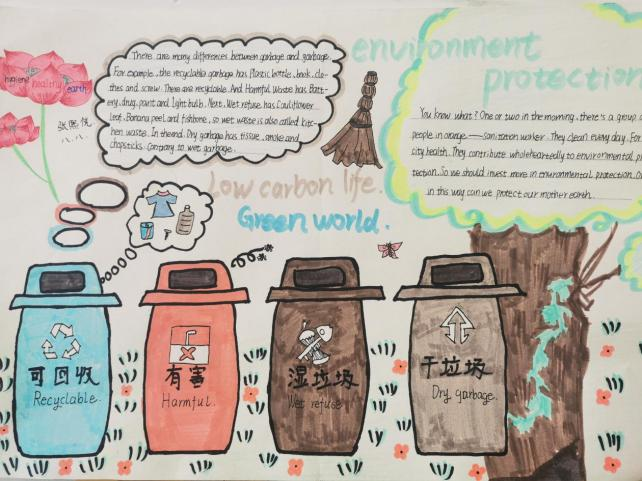 hygiene
healthy
earth
张熙悦
八.八.
There are many differences between garbage and garbage.
For example, the recyclable garbage has Plastic bottle, book, clo-
thes and screw. These are recyclable. And Harmful Waste has Batt-
ery, drug, paint and Light bulb. Next, Wet refuse has Cauliflower
Leaf, Banana peel and fishbone, so wet waste is also called kitc-
hen waste. In the end, Dry garbage has tissue, smoke and
chopsticks. Contrary to wet garbage.
environment
protection
You know what? One or two in the morning, there's a group o
people in orange——sanitation worker. They clean every day. For
city health. They contribute wholeheartedly to environmental p
tection. So we should invest more in environmental protection. O
in this way can we protect our mother earth.
Low carbon life.
Green world.
可回收
Recyclable.
有害
Harmful.
湿垃圾
Wet refuse
干垃圾
Dry garbage.